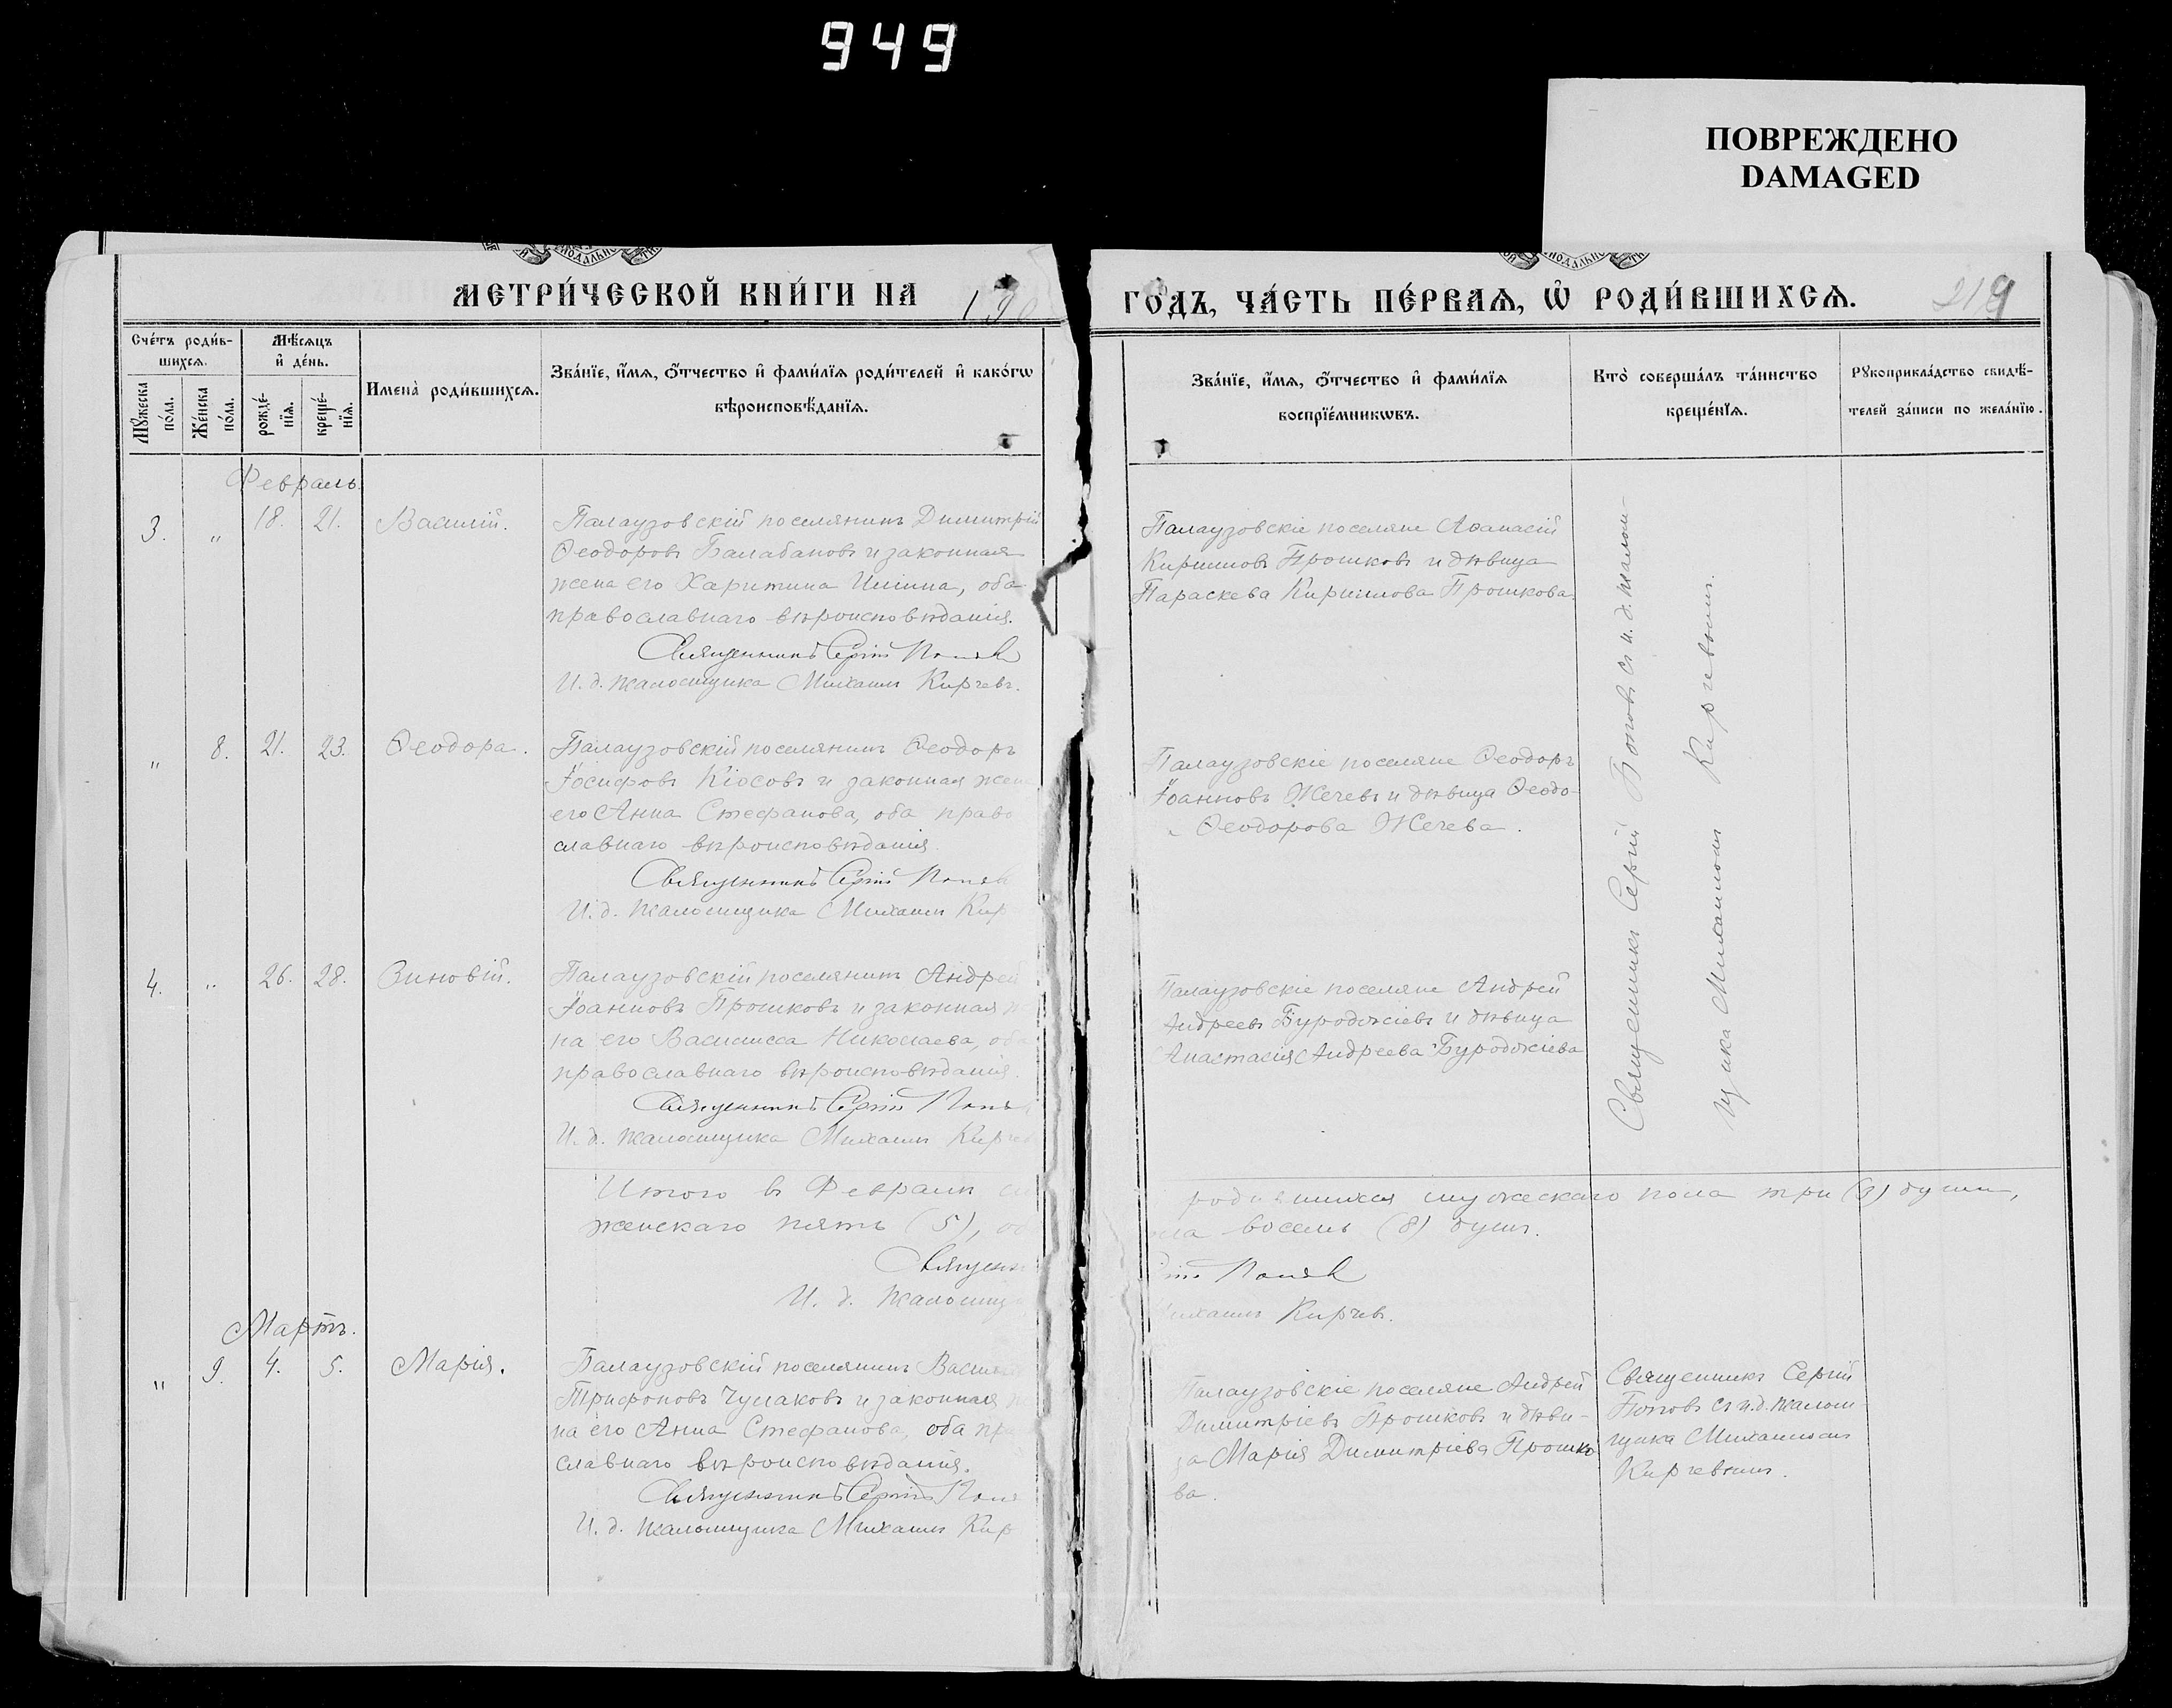 949
ПОВРЕЖДЕНО
DAMAGED
МЕТРИ́ЧЕСКОЙ КНИ́ГИ НА 190
ГО́ДЪ, ЧА́СТЬ ПЕ́РВАЯ, Ѽ РОДИ́ВШИХСЯ.
219
Сче́тъ роди́в-
шихся.
Мѣ́сяцъ
и҆ де́нь.
Мꙋ́жеска по́ла.
Же́нска по́ла.
рожде́-нїя.
креще́-нїя.
Имена̀ роди́вшихся.
Зва́нїе, и҆́мя, ѻ҆́тчество и҆ фами́лїя роди́телей и҆ како́гѡ
вѣроисповѣ́данїя.
Зва́нїе, и҆́мя, ѻ҆́тчество и҆ фами́лїя
воспрїе́мникѡвъ.
Кто̀ соверша́лъ та́инство
креще́нїя.
Рꙋкоприкла́дство свидѣ́-
телей за́писи по жела́нїю.
Февраль.
3. „ 18. 21. Василій.
Палаузовскій поселянинъ Димитрій
Ѳеодоровъ Балабановъ и законная
жена его Харитина Иліина, оба
православнаго вѣроисповѣданія.
Священникъ Сергій Поповъ
И. д. псаломщика Михаилъ Кирчевъ.
Палаузовскіе поселяне Аѳанасій
Кирилловъ Прошковъ и дѣвица
Параскева Кириллова Прошкова.
Священникъ Сергій Поповъ съ и. д. псалом-
щика Михаиломъ Кирчевымъ.
„ 8. 21. 23. Ѳеодора.
Палаузовскій поселянинъ Ѳеодоръ
Іосифовъ Кіосовъ и законная жен
его Анна Стефанова, оба право
славнаго вѣроисповѣданія.
Священникъ Сергій Попов
И. д. псаломщика Михаилъ Кир
Палаузовскіе поселяне Ѳеодоръ
Іоанновъ Жечевъ и дѣвица Ѳеодо-
Ѳеодорова Жечева.
4. „ 26. 28. Зиновій.
Палаузовскій поселянинъ Андрей
Іоанновъ Прошковъ и законная ж
на его Василисса Николаева, оба
православнаго вѣроисповѣданія.
Священникъ Сергій Попов
И. д. псаломщика Михаилъ Кирчев
Палаузовскіе поселяне Андрей
Андреевъ Буроджіевъ и дѣвица
Анастасія Андреева Буроджіева
Итого въ Февралѣ
родившихся мужескаго пола три (3) души,
женскаго пять (5), об
ла восемь (8) душъ.
Священн
гій Поповъ
И. д. псаломщ
ихаилъ Кирчевъ.
Мартъ.
„ 9. 4. 5. Марія.
Палаузовскій поселянинъ Васил
Трифоновъ Чумаковъ и законная
на его Анна Стефанова, оба пра
славнаго вѣроисповѣданія.
Священникъ Сергій Попо
И. д. псаломщика Михаилъ Кир
Палаузовскіе поселяне Андрей
Димитріевъ Прошковъ и дѣви-
ца Марія Димитріева Прошко
ва.
Священникъ Сергій
Поповъ съ и. д. псалом
щика Михаиломъ
Кирчевымъ.